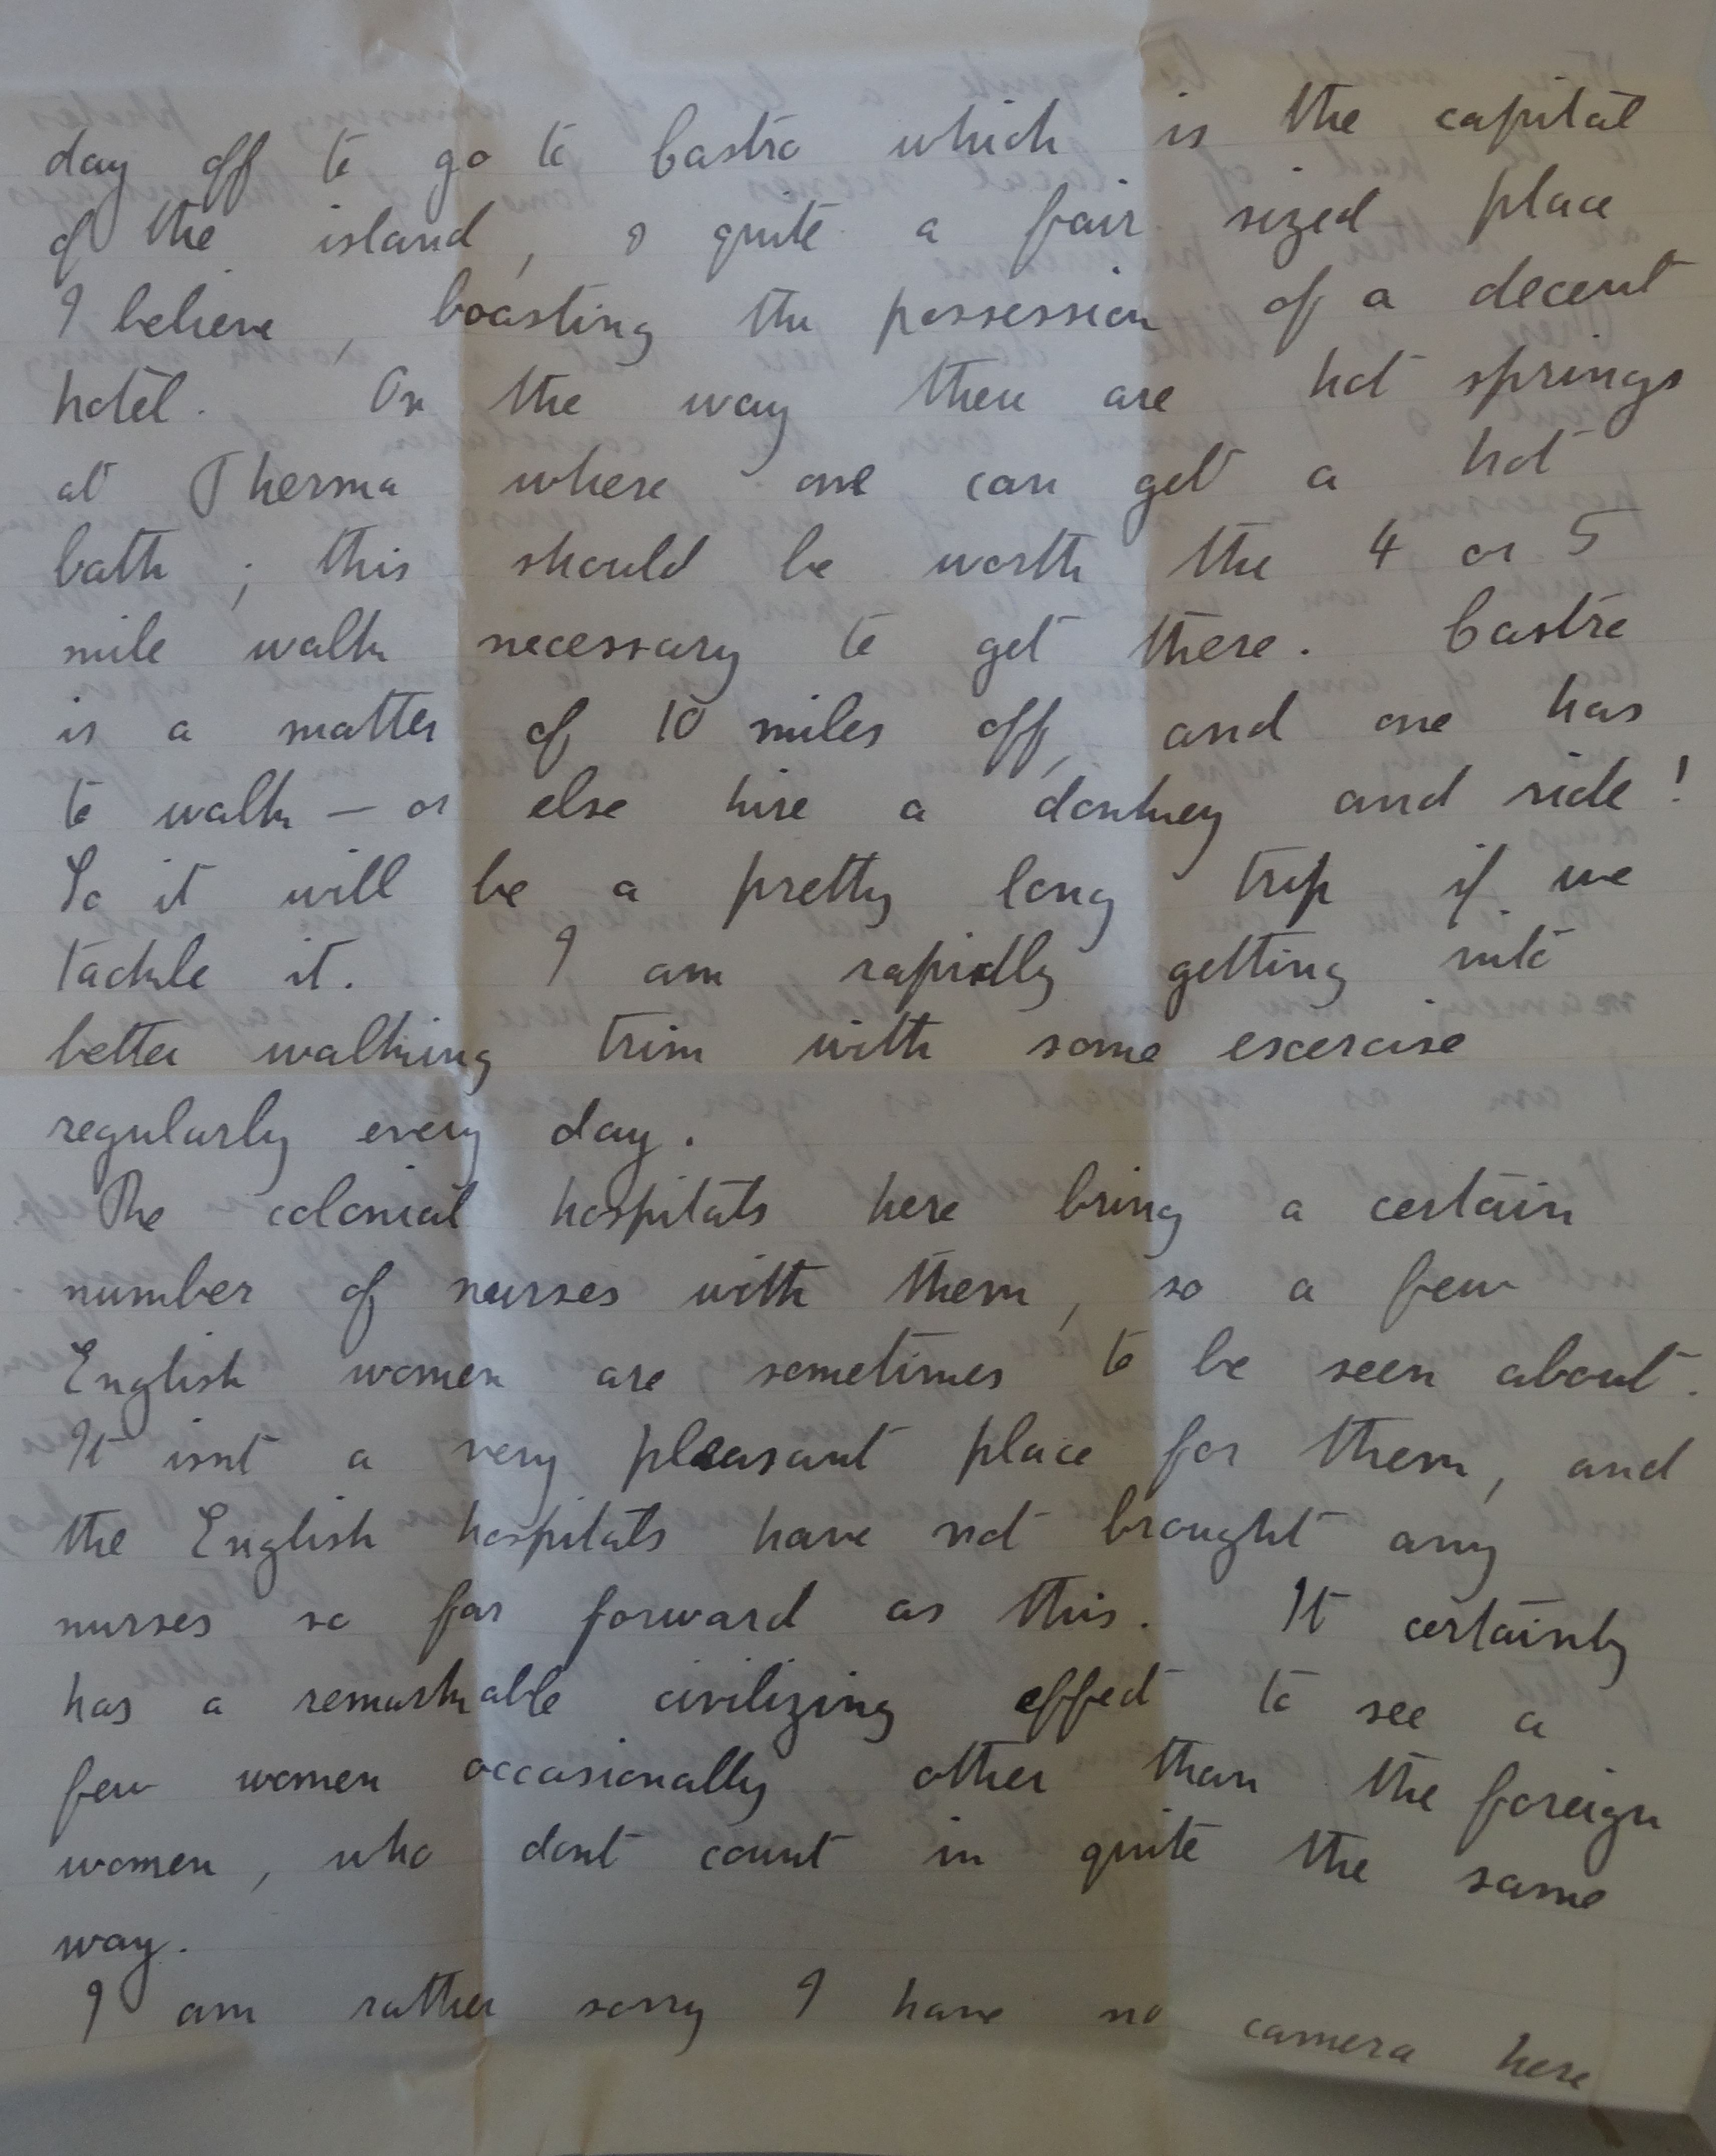 day off to go to Castro which is the capital
of the island, & quite a fair sized place
I believe, boasting the possession of a decent
hotel. On the way there are hot springs
at Therma where one can get a hot
bath; this should be worth the 4 or 5
mile walk necessary to get there. Castro
is a matter of 10 miles off, and one has
to walk — or else hire a donkey and ride!
So it will be a pretty long trip if we
tackle it. I am rapidly getting into
better walking trim with some excercise
regularly every day.
The colonial hospitals here bring a certain
number of nurses with them, so a few
English women are sometimes to be seen about.
It isnt a very pleasant place for them, and
the English hospitals have not brought any
nurses so far forward as this. It certainly
has a remarkable civilizing effect to see a
few women occasionally other than the foreign
women, who dont count in quite the same
way.
I am rather sorry I have no camera here